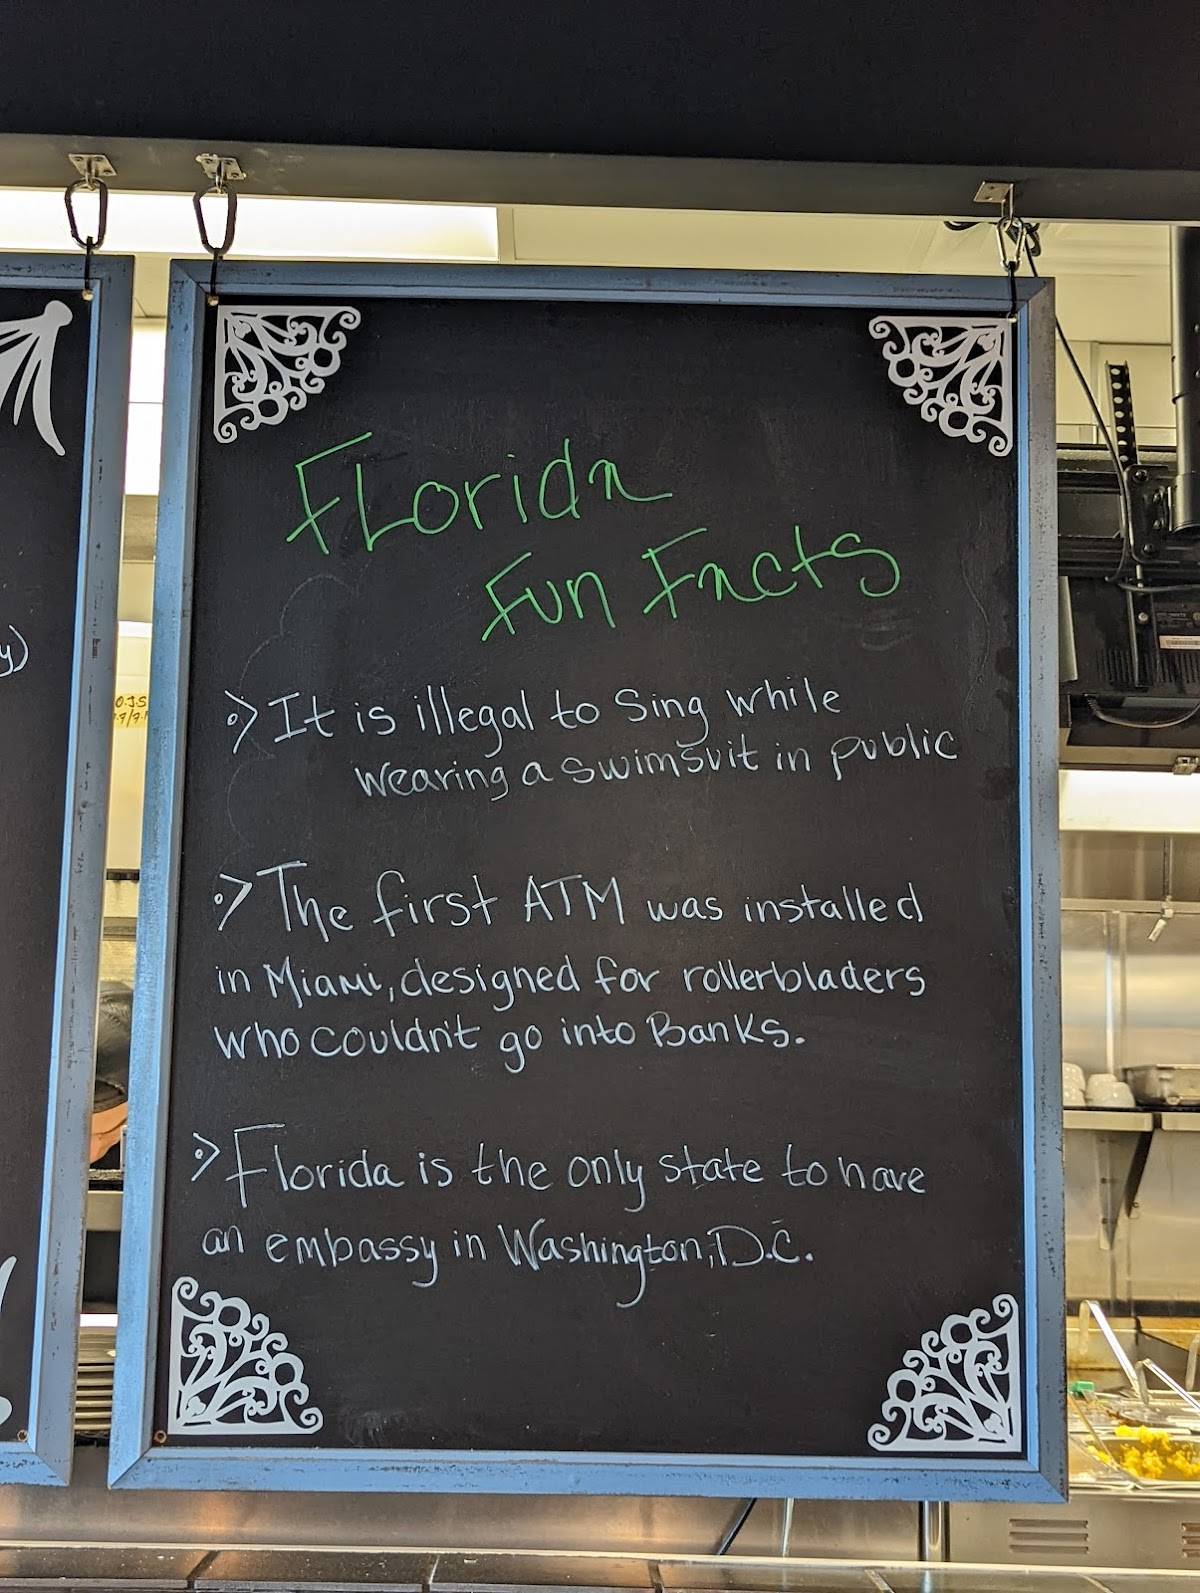 FLorida
Fun Facts
y)
O.J.S
It is illegal to Sing while
wearing a swimsuit in public
The first ATM was installed
in Miami, designed for rollerbladers
who couldn't go into Banks.
Florida is the only state to have
an embassy in Washington, D.C.